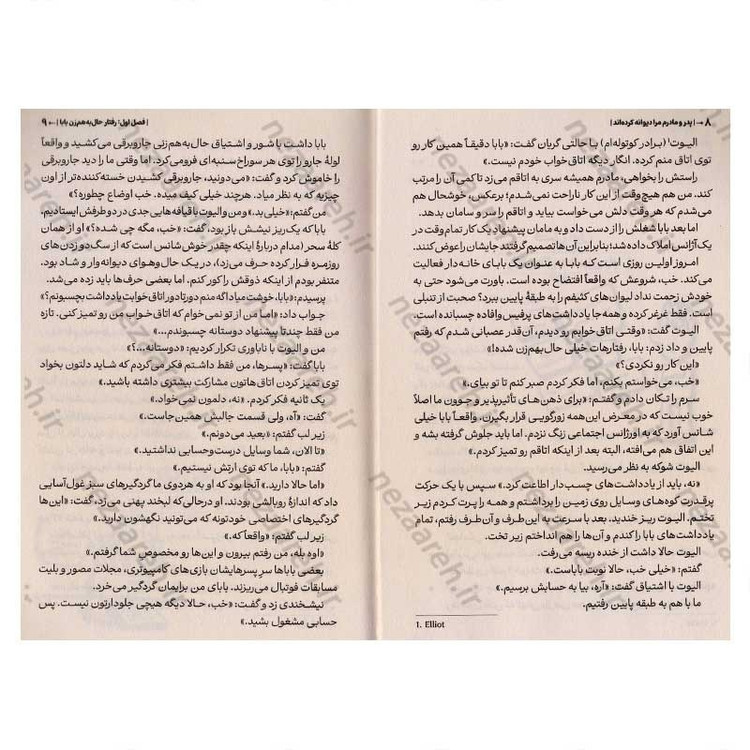 ۸ ← | پدر و مادرم مرا دیوانه کرده‌اند |
الیوت۱ (برادر کوتوله‌ام) با حالتی گریان گفت: «بابا دقیقاً همین کار رو
توی اتاق منم کرده. انگار دیگه اتاق خواب خودم نیست.»
راستش را بخواهی، مادرم همیشه سری به اتاقم می‌زد تا کمی آن را مرتب
کند. من هم هیچ‌وقت از این کار ناراحت نمی‌شدم؛ برعکس، خوشحال هم
می‌شدم که هر وقت دلش می‌خواست بیاید و اتاقم را سر و سامان بدهد.
اما بعد بابا شغلش را از دست داد و به مامان پیشنهاد یک کار تمام‌وقت در
یک آژانس املاک داده شد؛ بنابراین آن‌ها تصمیم گرفتند جایشان را عوض کنند.
امروز اولین روزی است که بابا به عنوان یک بابای خانه‌دار فعالیت
می‌کند. خب، شروعش که واقعاً افتضاح بوده است. باورت می‌شود حتی به
خودش زحمت نداد لیوان‌های کثیفم را به طبقهٔ پایین ببرد؟ صحبت از تنبلی
است. فقط غرغر کرده و همه‌جا یادداشت‌های پرفیس‌وافاده چسبانده است.
الیوت گفت: «وقتی اتاق‌خوابم رو دیدم، آن‌قدر عصبانی شدم که رفتم
پایین و داد زدم: بابا، رفتارهات خیلی حال‌بهم‌زن شده!»
«این کار رو نکردی؟»
«خب، می‌خواستم بکنم، اما فکر کردم صبر کنم تا تو بیای.»
سرم را تکان دادم و گفتم: «برای ذهن‌های تأثیرپذیر و جوون ما اصلاً
خوب نیست که در معرض این‌همه زورگویی قرار بگیرن. واقعاً بابا خیلی
شانس آورد که به اورژانس اجتماعی زنگ نزدم. اما باید جلوش گرفته بشه و
این اتفاق هم می‌افته، البته بعد از اینکه اتاقم رو تمیز کردم.»
الیوت شوکه به نظر می‌رسید.
«نه، باید از یادداشت‌های چسب‌دار اطاعت کرد.» سپس با یک حرکت
پرقدرت کوه‌های وسایل روی زمین را برداشتم و همه را پرت کردم زیر
تختم. الیوت ریز خندید. بعد با سرعت به این‌طرف و آن‌طرف رفتم، تمام
یادداشت‌های بابا را کندم و آن‌ها را هم انداختم زیر تخت.
الیوت حالا داشت از خنده ریسه می‌رفت.
گفتم: «خیلی خب، حالا نوبت باباست.»
الیوت با اشتیاق گفت: «آره، بیا به حسابش برسیم.»
ما با هم به طبقه پایین رفتیم.
1. Elliot
| فصل اول: رفتار حال‌به‌هم‌زن بابا | → ۹
بابا داشت با شور و اشتیاق حال‌به‌هم‌زنی جاروبرقی می‌کشید و واقعاً
لولهٔ جارو را توی هر سوراخ سنبه‌ای فرو می‌کرد. اما وقتی ما را دید جاروبرقی
را خاموش کرد و گفت: «می‌دونید، جاروبرقی کشیدن خسته‌کننده‌تر از اون
چیزیه که به نظر میاد. هرچند خیلی کیف میده. خب اوضاع چطوره؟»
من گفتم: «خیلی بد.» و من و الیوت با قیافه‌هایی جدی در دو طرفش ایستادیم.
بابا که یک‌ریز نیشش باز بود، گفت: «خب، مگه چی شده؟» او از همان
کلهٔ سحر (مدام دربارهٔ اینکه چقدر خوش‌شانس است که از سگ‌دو زدن‌های
روزمره فرار کرده حرف می‌زد)، در یک حال‌وهوای دیوانه‌وار و شاد بود.
متنفر بودم از اینکه ذوقش را کور کنم. اما بعضی حرف‌ها باید زده می‌شد.
پرسیدم: «بابا، خوشت میاد اگه منم دورتادور اتاق خوابت یادداشت بچسبونم؟»
جواب داد: «اما من از تو نمی‌خوام که اتاق خواب من رو تمیز کنی. تازه
من فقط چندتا پیشنهاد دوستانه چسبوندم...»
من و الیوت با ناباوری تکرار کردیم: «دوستانه...؟»
بابا گفت: «پسرها، من فقط داشتم فکر می‌کردم که شاید دلتون بخواد
توی تمیز کردن اتاق‌هاتون مشارکت بیشتری داشته باشید.»
یک ثانیه فکر کردم. «نه، دلمون نمی‌خواد.»
گفت: «آه، ولی قسمت جالبش همین‌جاست.»
زیر لب گفتم: «بعید می‌دونم.»
«تا الان، شما وسایل درست‌وحسابی نداشتید.»
گفتم: «بابا، ما که توی ارتش نیستیم.»
«اما حالا دارید.» آنجا بود که او به هردوی ما گردگیرهای سبز غول‌آسایی
داد که اندازهٔ روبالشی بودند. او درحالی‌که لبخند پهنی می‌زد، گفت: «این‌ها
گردگیرهای اختصاصی خودتونه که می‌تونید نگهشون دارید.»
زیر لب گفتم: «واقعاً که.»
«اوه بله، من رفتم بیرون و این‌ها رو مخصوص شما گرفتم.»
بعضی باباها سر پسرهایشان بازی‌های کامپیوتری، مجلات مصور و بلیت
مسابقات فوتبال می‌ریزند. بابای من برایمان گردگیر می‌خرد.
نیشخندی زد و گفت: «خب، حالا دیگه هیچی جلودارتون نیست. پس
حسابی مشغول بشید.»
nezaareh.ir